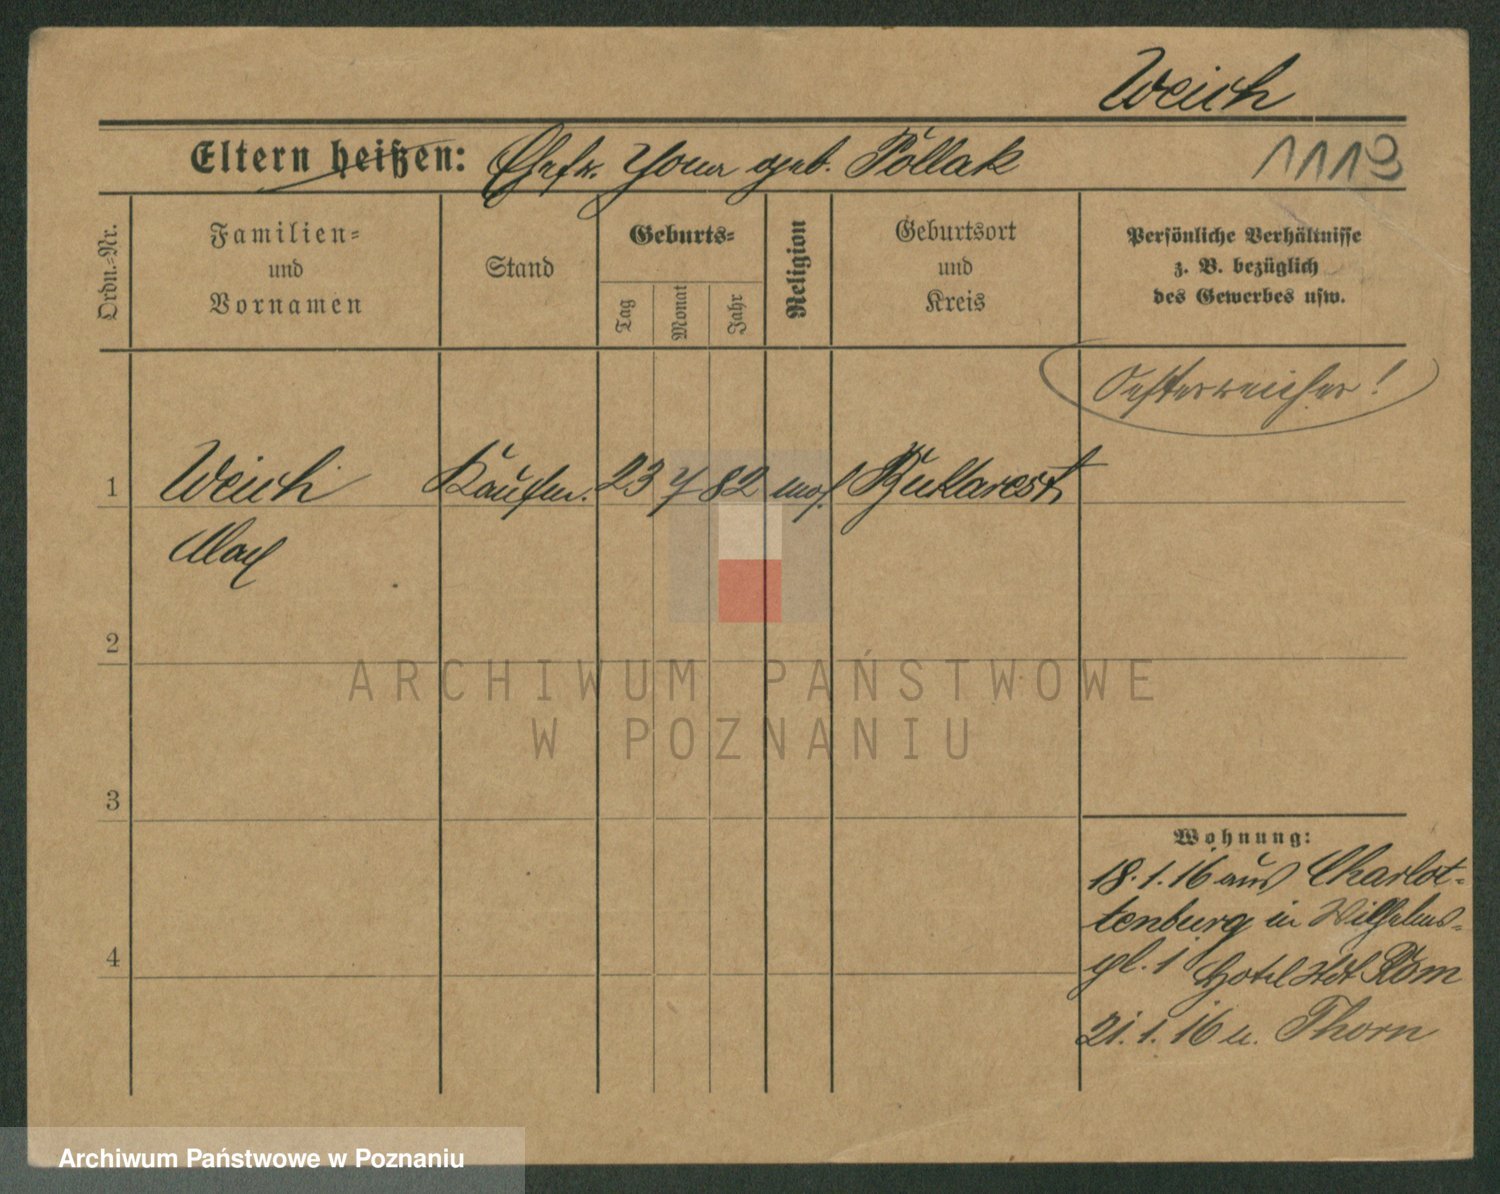 Weich
1119
Eltern heißen: Ehefr. geb. Pollak
Ordn.-Nr.
Familien-
und
Vornamen
Stand
Geburts-
Tag
Monat
Jahr
Religion
Geburtsort
und
Kreis
Persönliche Verhältnisse
z. B. bezüglich
des Gewerbes usw.
Oesterreicher!
1 Weich Kaufm. 23 7 82 mos. Bukarest
Max
2
ARCHIWUM PAŃSTWOWE
W POZNANIU
3
Wohnung:
18.1.16 aus Charlot-
tenburg in Wilhelms-
pl. 1 Hotel Rom
21.1.16 n. Thorn
4
Archiwum Państwowe w Poznaniu